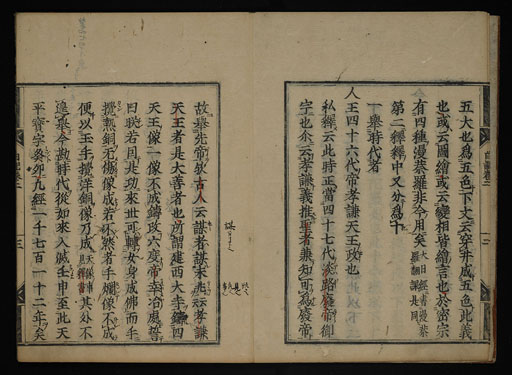 五大也為五色下文云穿井成五色此義
也或云圖繪或云變相皆繪言也於密宗
有四種漫荼羅非今用矣大日經書漫荼羅翻譯是同
第二經釋中又分為十
一舉時代者
人王四十六代帝孝謙天王政也
私繹云此時正當四十七代淡路廢帝御
宇也尒云孝謙義推聖者兼知可為廢帝
故舉先帝欤古人云謀者謀末兆云孝謙
天王者是大善者也所謂建西大寺鑄四
天王像一像不成鑄改六度帝幸冶處誓
曰朕若因是功來世可轉女身成佛而手
攪熱銅無傷像成若不然者手爛像不成
便以玉手攪洋銅像乃成其外不
遑舉今勘時代從如來入滅壬申至此天
平寶字癸卯九經一千七百一十二年矣